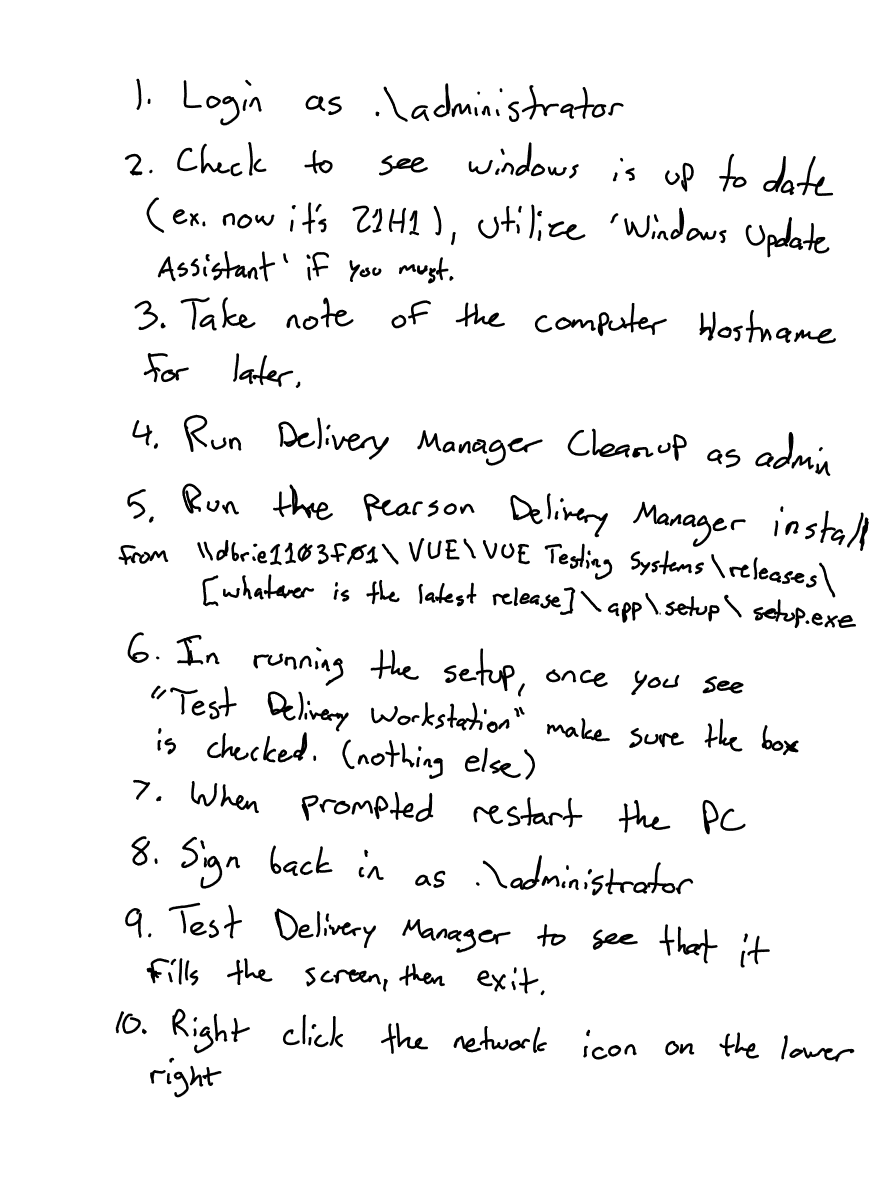 1. Login as .\administrator
2. Check to see windows is up to date
(ex. now it's 21H1), utilize 'Windows Update
Assistant' if you must.
3. Take note of the computer Hostname
for later.
4. Run Delivery Manager Cleanup as admin
5. Run the Pearson Delivery Manager install
from \\dbrie1103f01\VUE\VUE Testing Systems\releases\
[whatever is the latest release]\app\setup\setup.exe
6. In running the setup, once you see
"Test Delivery Workstation" make sure the box
is checked. (nothing else)
7. When prompted restart the PC
8. Sign back in as .\administrator
9. Test Delivery Manager to see that it
fills the screen, then exit.
10. Right click the network icon on the lower
right